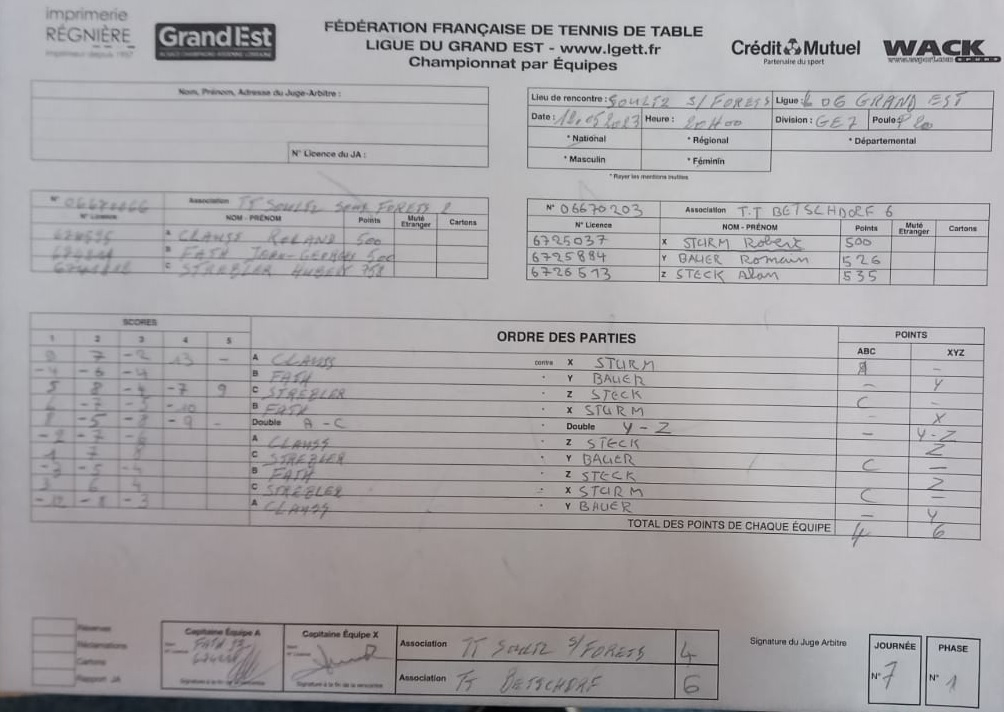 imprimerie
RÉGNIÈRE
Grand Est
FÉDÉRATION FRANÇAISE DE TENNIS DE TABLE
LIGUE DU GRAND EST - www.lgett.fr
Championnat par Équipes
Crédit Mutuel
Partenaire du sport
WACK
Nom, Prénom, Adresse du Juge-Arbitre :
N° Licence du JA :
Lieu de rencontre : SOULTZ S/FORETS Ligue : 06 GRAND EST
Date : Heure : 20H00 Division : GE7 Poule
* National * Régional * Départemental
* Masculin * Féminin
* Rayer les mentions inutiles
N° Association TT SOULTZ SOUS FORETS 2
N° Licence NOM - PRÉNOM Points Muté Etranger Cartons
A CLAUSS ROLAND 500
B FATH JEAN-GERMAIN 500
C STREBLER HUBERT
N° 06670203 Association T.T BETSCHDORF 6
N° Licence NOM - PRÉNOM Points Muté Etranger Cartons
6725037 X STURM Robert 500
6725884 Y BAUER Romain 526
6726513 Z STECK Alan 535
SCORES ORDRE DES PARTIES POINTS
1 2 3 4 5 ABC XYZ
7 -2 13 - A CLAUSS contre X STURM -
-4 -6 -4 B FATH Y BAUER - Y
5 8 -4 -7 9 C STREBLER Z STECK C -
-7 -10 B FATH X STURM - X
8 -5 -8 -9 - Double A-C Double Y-Z - Y-Z
-2 -7 A CLAUSS Z STECK Z
7 C STREBLER Y BAUER C -
-3 -5 -4 B FATH Z STECK Z
3 6 4 C STREBLER X STURM C -
-12 -8 -3 A CLAUSS Y BAUER - Y
TOTAL DES POINTS DE CHAQUE ÉQUIPE 4 6
Réserves
Réclamations
Cartons
Rapport JA
Capitaine Équipe A
FATH
Signature à la fin de la rencontre
Capitaine Équipe X
Signature à la fin de la rencontre
Association TT SOULTZ S/FORETS 4
Association TT BETSCHDRF 6
Signature du Juge Arbitre
JOURNÉE
N° 7
PHASE
N° 1